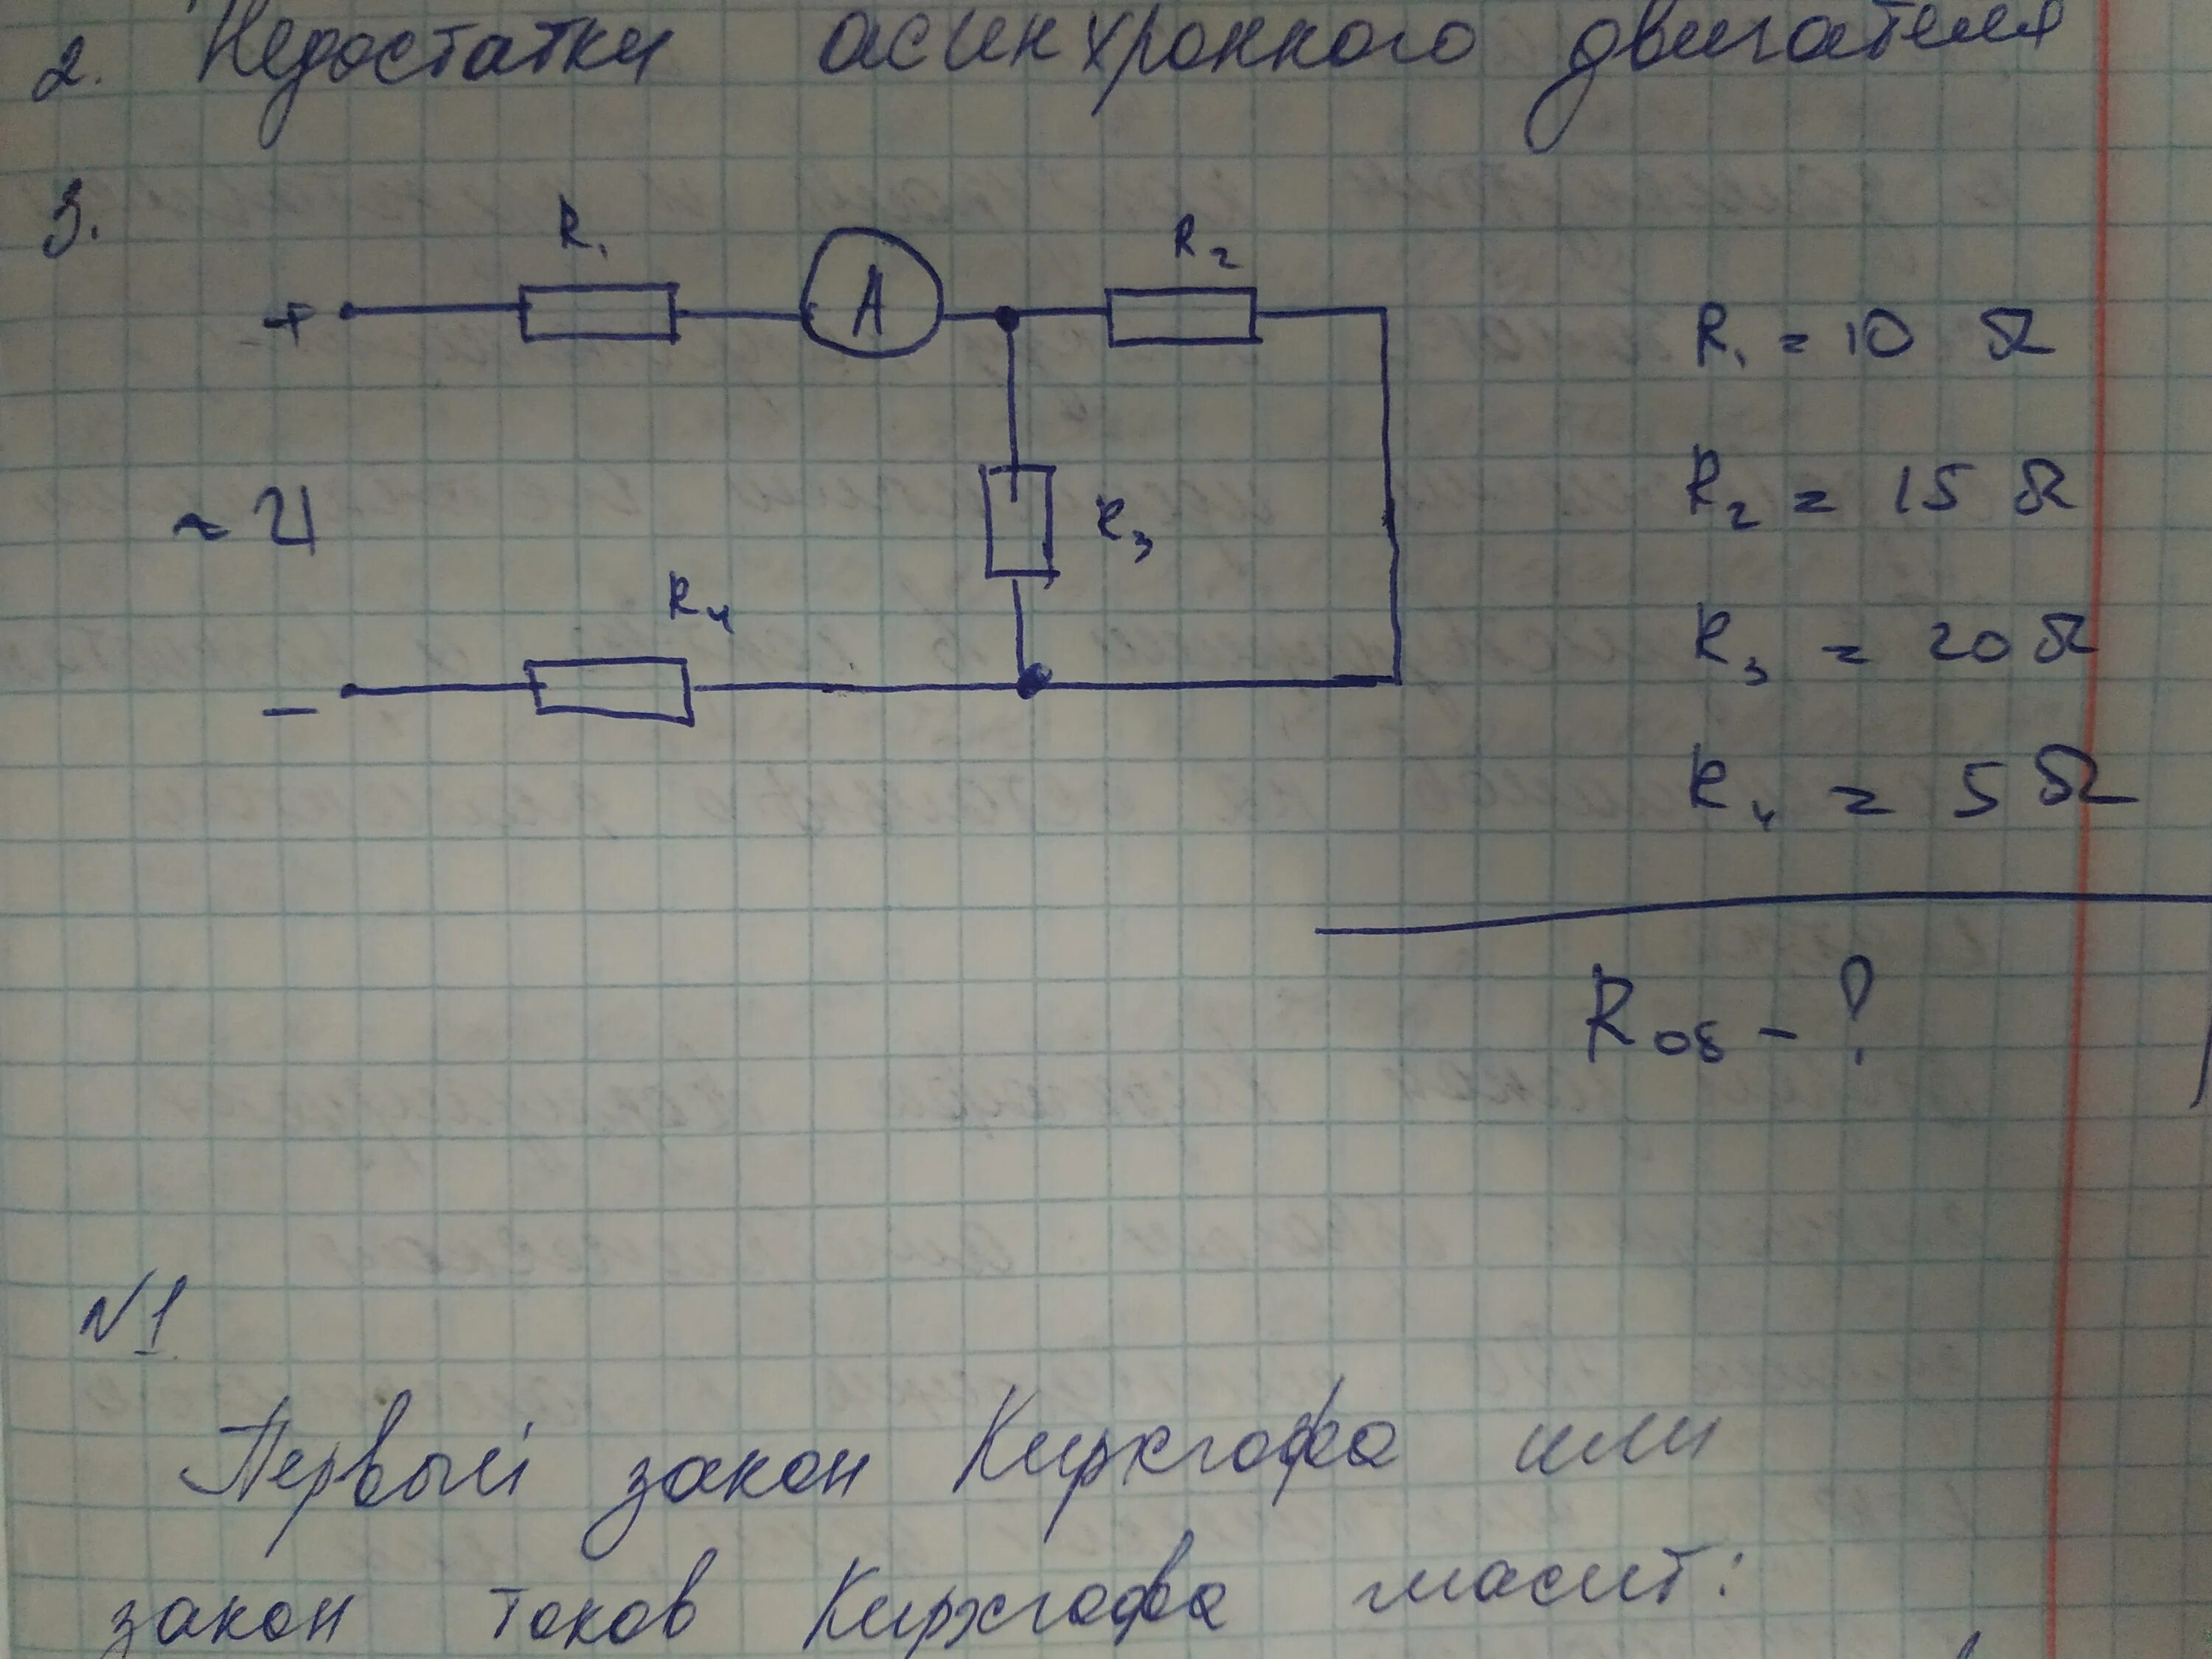 2. Недостатки асинхронного двигателя
3.
R₁
A
R₂
+
R₁ = 10 Ω
~ U
R₃
R₂ = 15 Ω
R₄
R₃ = 20 Ω
–
R₄ = 5 Ω
Rоб - ?
N1
Первый закон Кирхгофа или
закон токов Кирхгофа гласит: